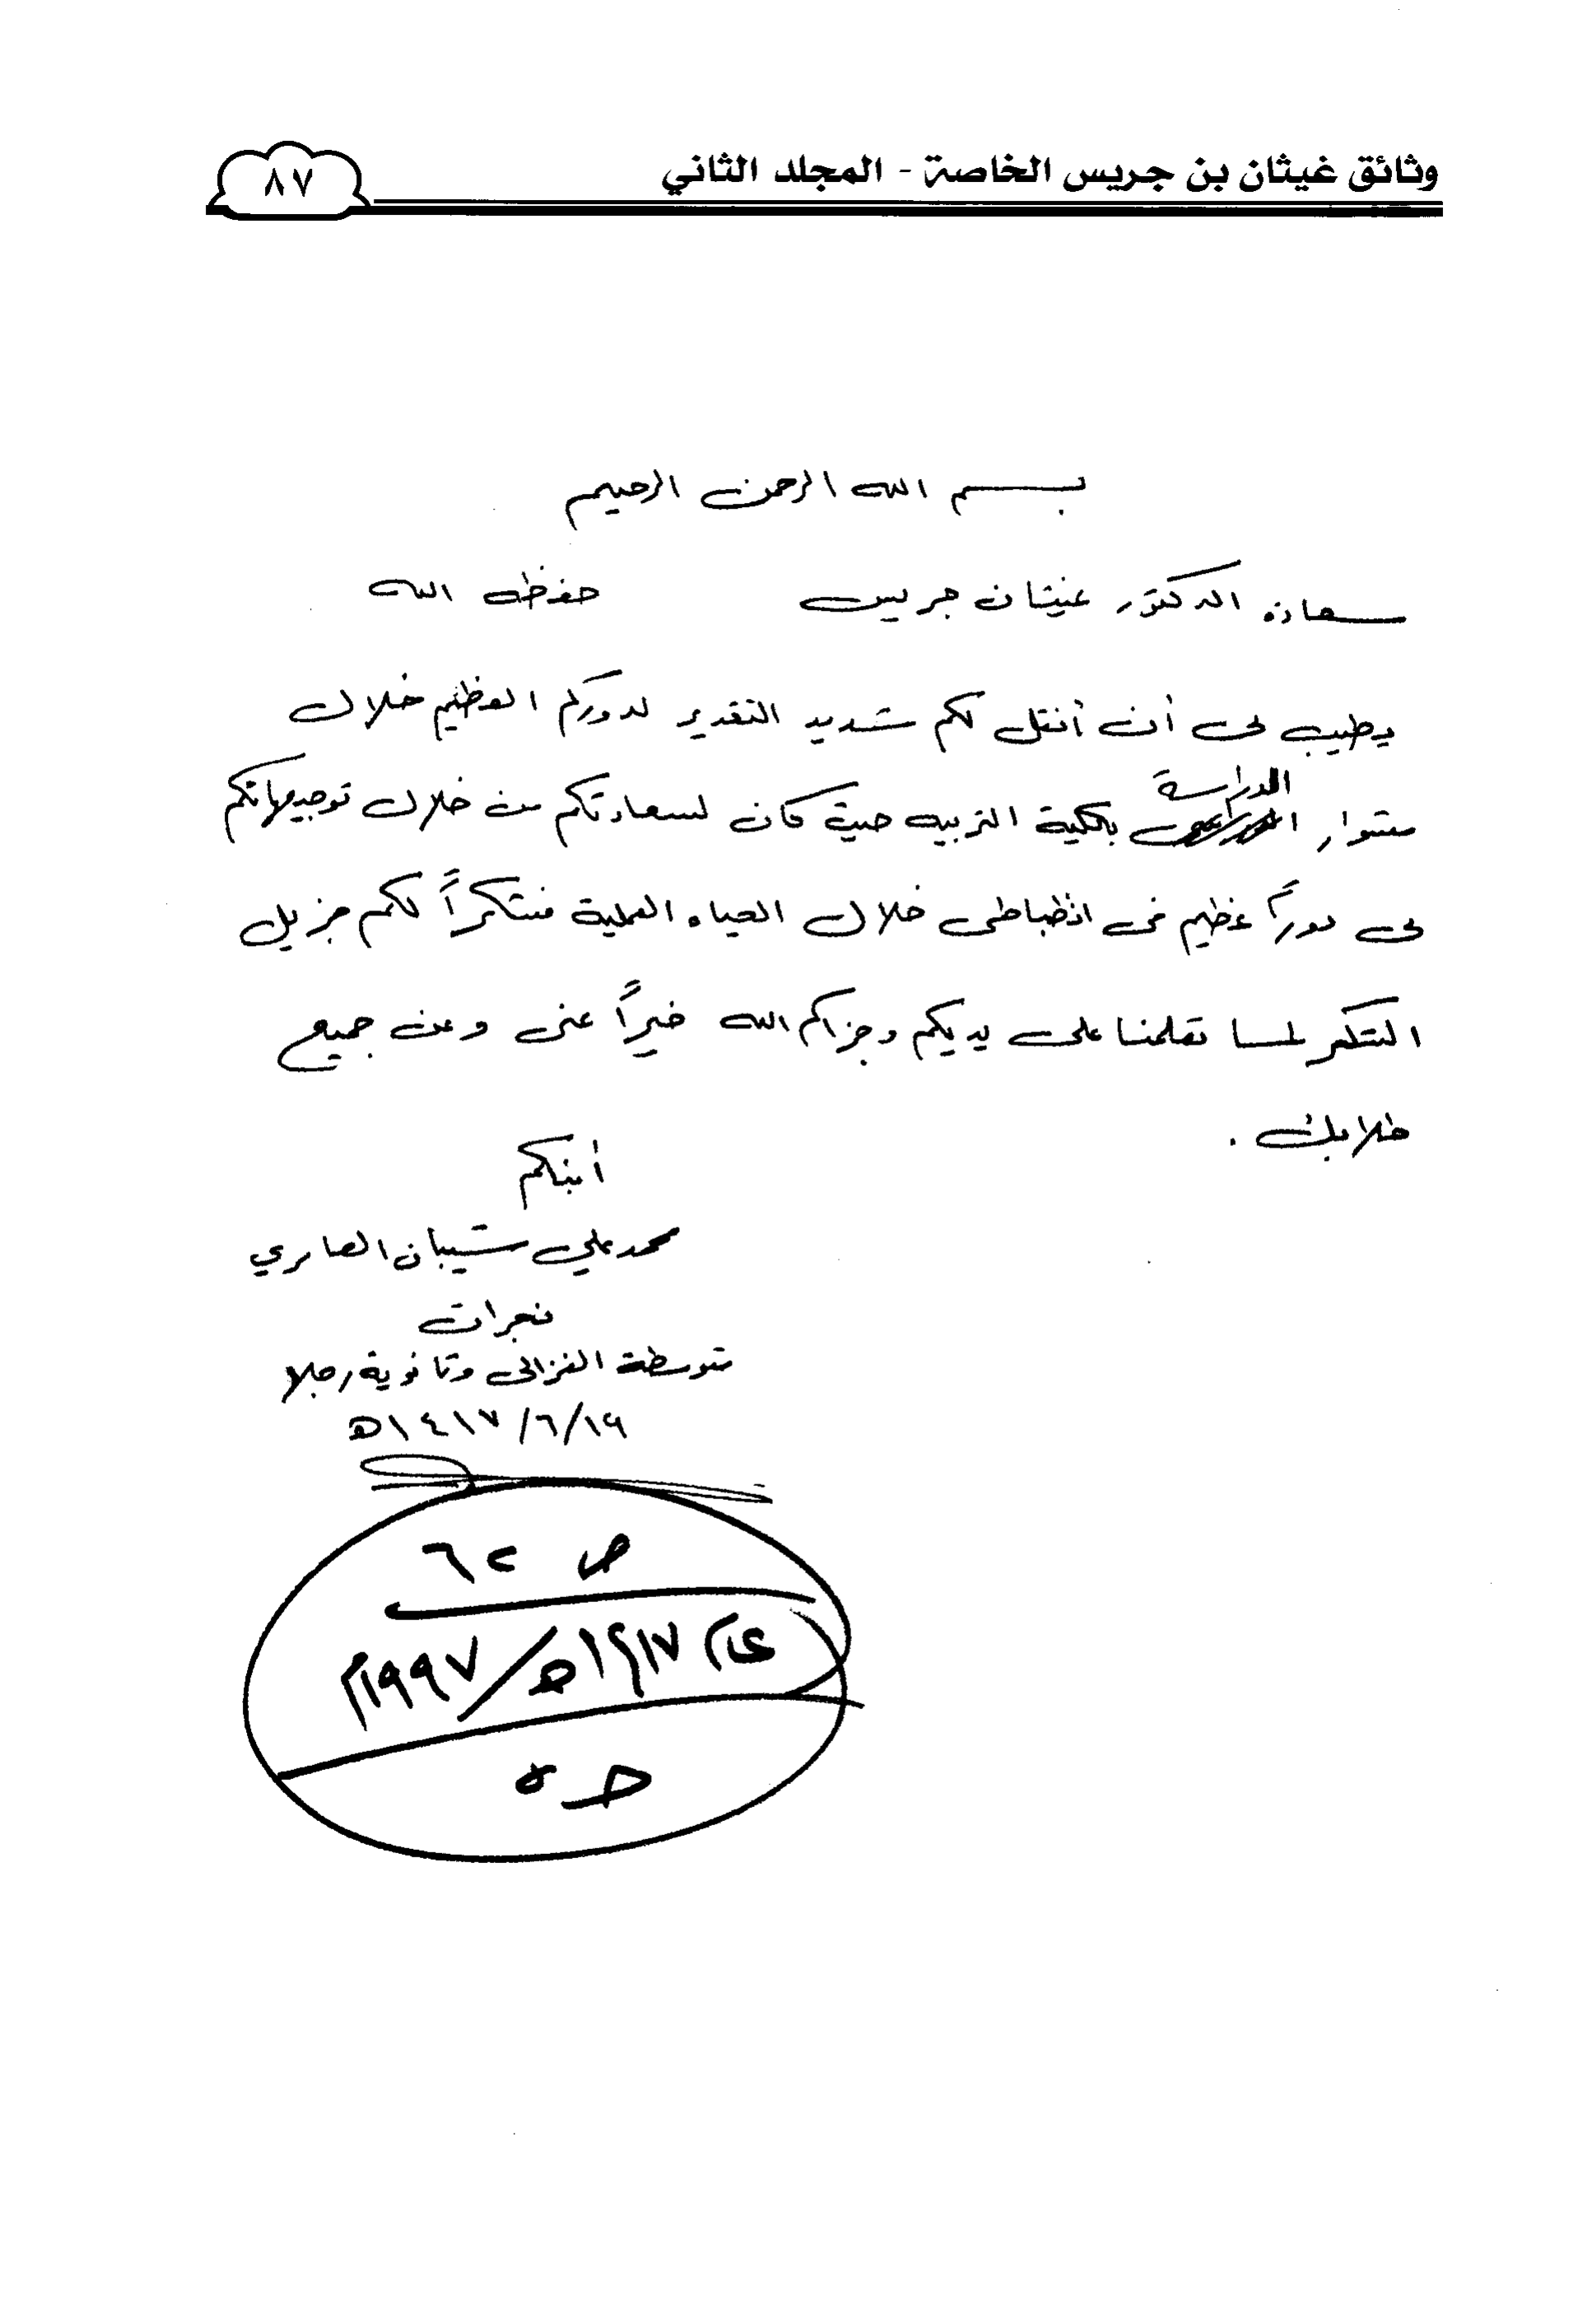 وثائق غيثان بن جريس الخاصة - المجلد الثاني
٨٧
بسم الله الرحمن الرحيم
سعادة الدكتور غيثان جريس حفظه الله
يطيب لى أن أنقل لكم شديد التقدير لدوركم العظيم خلال
مشوار الدراسة بكلية التربيه حيث كان لسعادتكم من خلال توجيهاتكم
لى دوراً عظيم فى انظباطى خلال الحياه العملية فشكراً لكم جزيل
الشكر لما تعلمنا على يديكم وجزاكم الله خيراً عنى وعن جميع
طلابك .
أبنكم
محمد علي شيبان العامري
نجران
متوسطة الغزالى وثانوية رجلا
١٤١٧/٦/١٩ه
ص ٦٢
عام ١٤١٧ه/١٩٩٧م
ح ٥